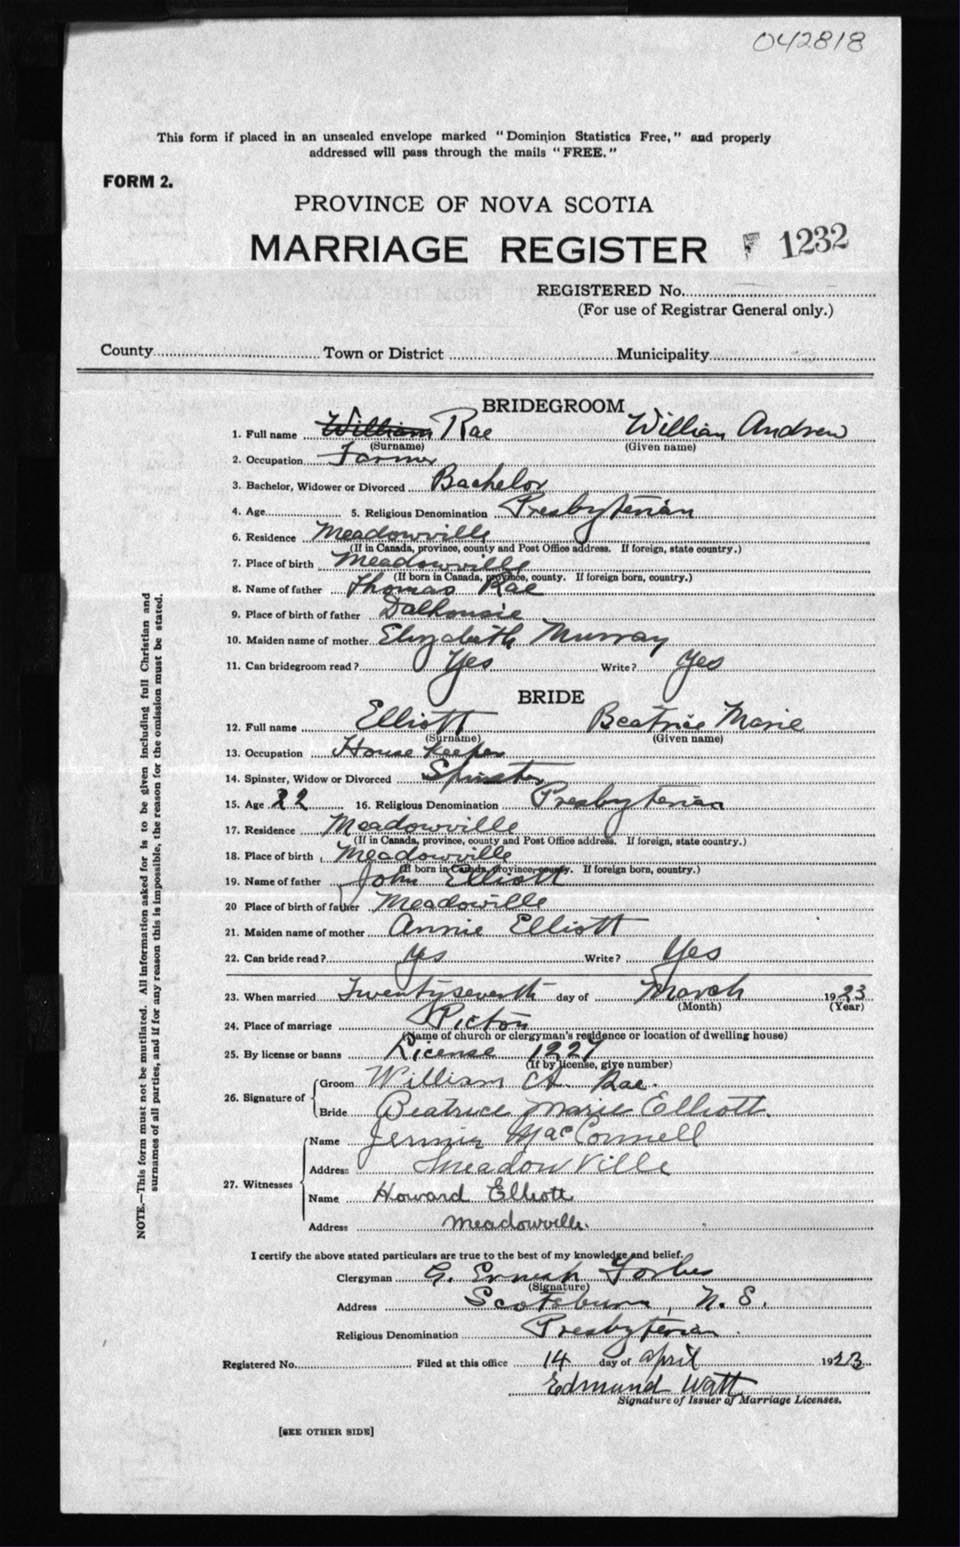 042818
This form if placed in an unsealed envelope marked "Dominion Statistics Free," and properly
addressed will pass through the mails "FREE."
FORM 2.
PROVINCE OF NOVA SCOTIA
MARRIAGE REGISTER 1232
REGISTERED No.
(For use of Registrar General only.)
County Town or District Municipality
BRIDEGROOM
1. Full name William Rae William Andrew
(Surname) (Given name)
2. Occupation Farmer
3. Bachelor, Widower or Divorced Bachelor
4. Age 5. Religious Denomination Presbyterian
6. Residence Meadowville
(If in Canada, province, county and Post Office address. If foreign, state country.)
7. Place of birth Meadowville
(If born in Canada, province, county. If foreign born, country.)
8. Name of father Thomas Rae
9. Place of birth of father Dalhousie
10. Maiden name of mother Elizabeth Murray
11. Can bridegroom read? Yes Write? Yes
BRIDE
12. Full name Elliott Beatrice Marie
(Surname) (Given name)
13. Occupation House Keeper
14. Spinster, Widow or Divorced Spinster
15. Age 22 16. Religious Denomination Presbyterian
17. Residence Meadowville
(If in Canada, province, county and Post Office address. If foreign, state country.)
18. Place of birth Meadowville
(If born in Canada, province, county. If foreign born, country.)
19. Name of father John Elliott
20 Place of birth of father Meadowville
21. Maiden name of mother Annie Elliott
22. Can bride read? Yes Write? Yes
23. When married Twentyseventh day of March 1923
(Month) (Year)
24. Place of marriage Pictou
(Name of church or clergyman's residence or location of dwelling house)
25. By license or banns License 1227
(If by license, give number)
26. Signature of Groom William A. Rae.
Bride Beatrice Marie Elliott.
27. Witnesses Name Jennie MacConnell
Address Meadowville
Name Howard Elliott
Address Meadowville.
I certify the above stated particulars are true to the best of my knowledge and belief.
Clergyman G. Ernest Forbes
(Signature)
Address Scotsburn, N. S.
Religious Denomination Presbyterian.
Registered No. Filed at this office 14 day of April 1923
Edmund Watt
Signature of Issuer of Marriage Licenses.
[SEE OTHER SIDE]
NOTE.—This form must not be mutilated. All information asked for is to be given including full Christian and
surnames of all parties, and if for any reason this is impossible, the reason for the omission must be stated.